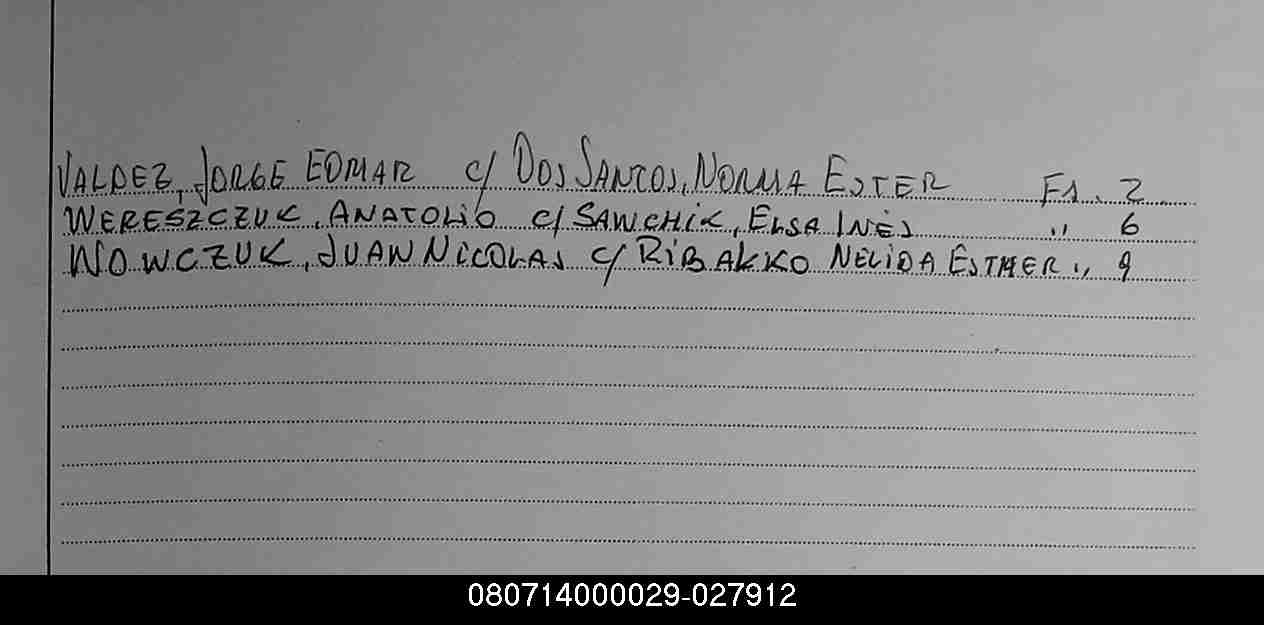 VALDEZ, JORGE EDMAR c/ DOS SANTOS, NORMA ESTER Fs. 2
WERESZCZUK, ANATOLIO c/ SAWCHIK, ELSA INÉS " 6
WOWCZUK, JUAN NICOLAS c/ RIBAKKO NELIDA ESTHER " 9
080714000029-027912